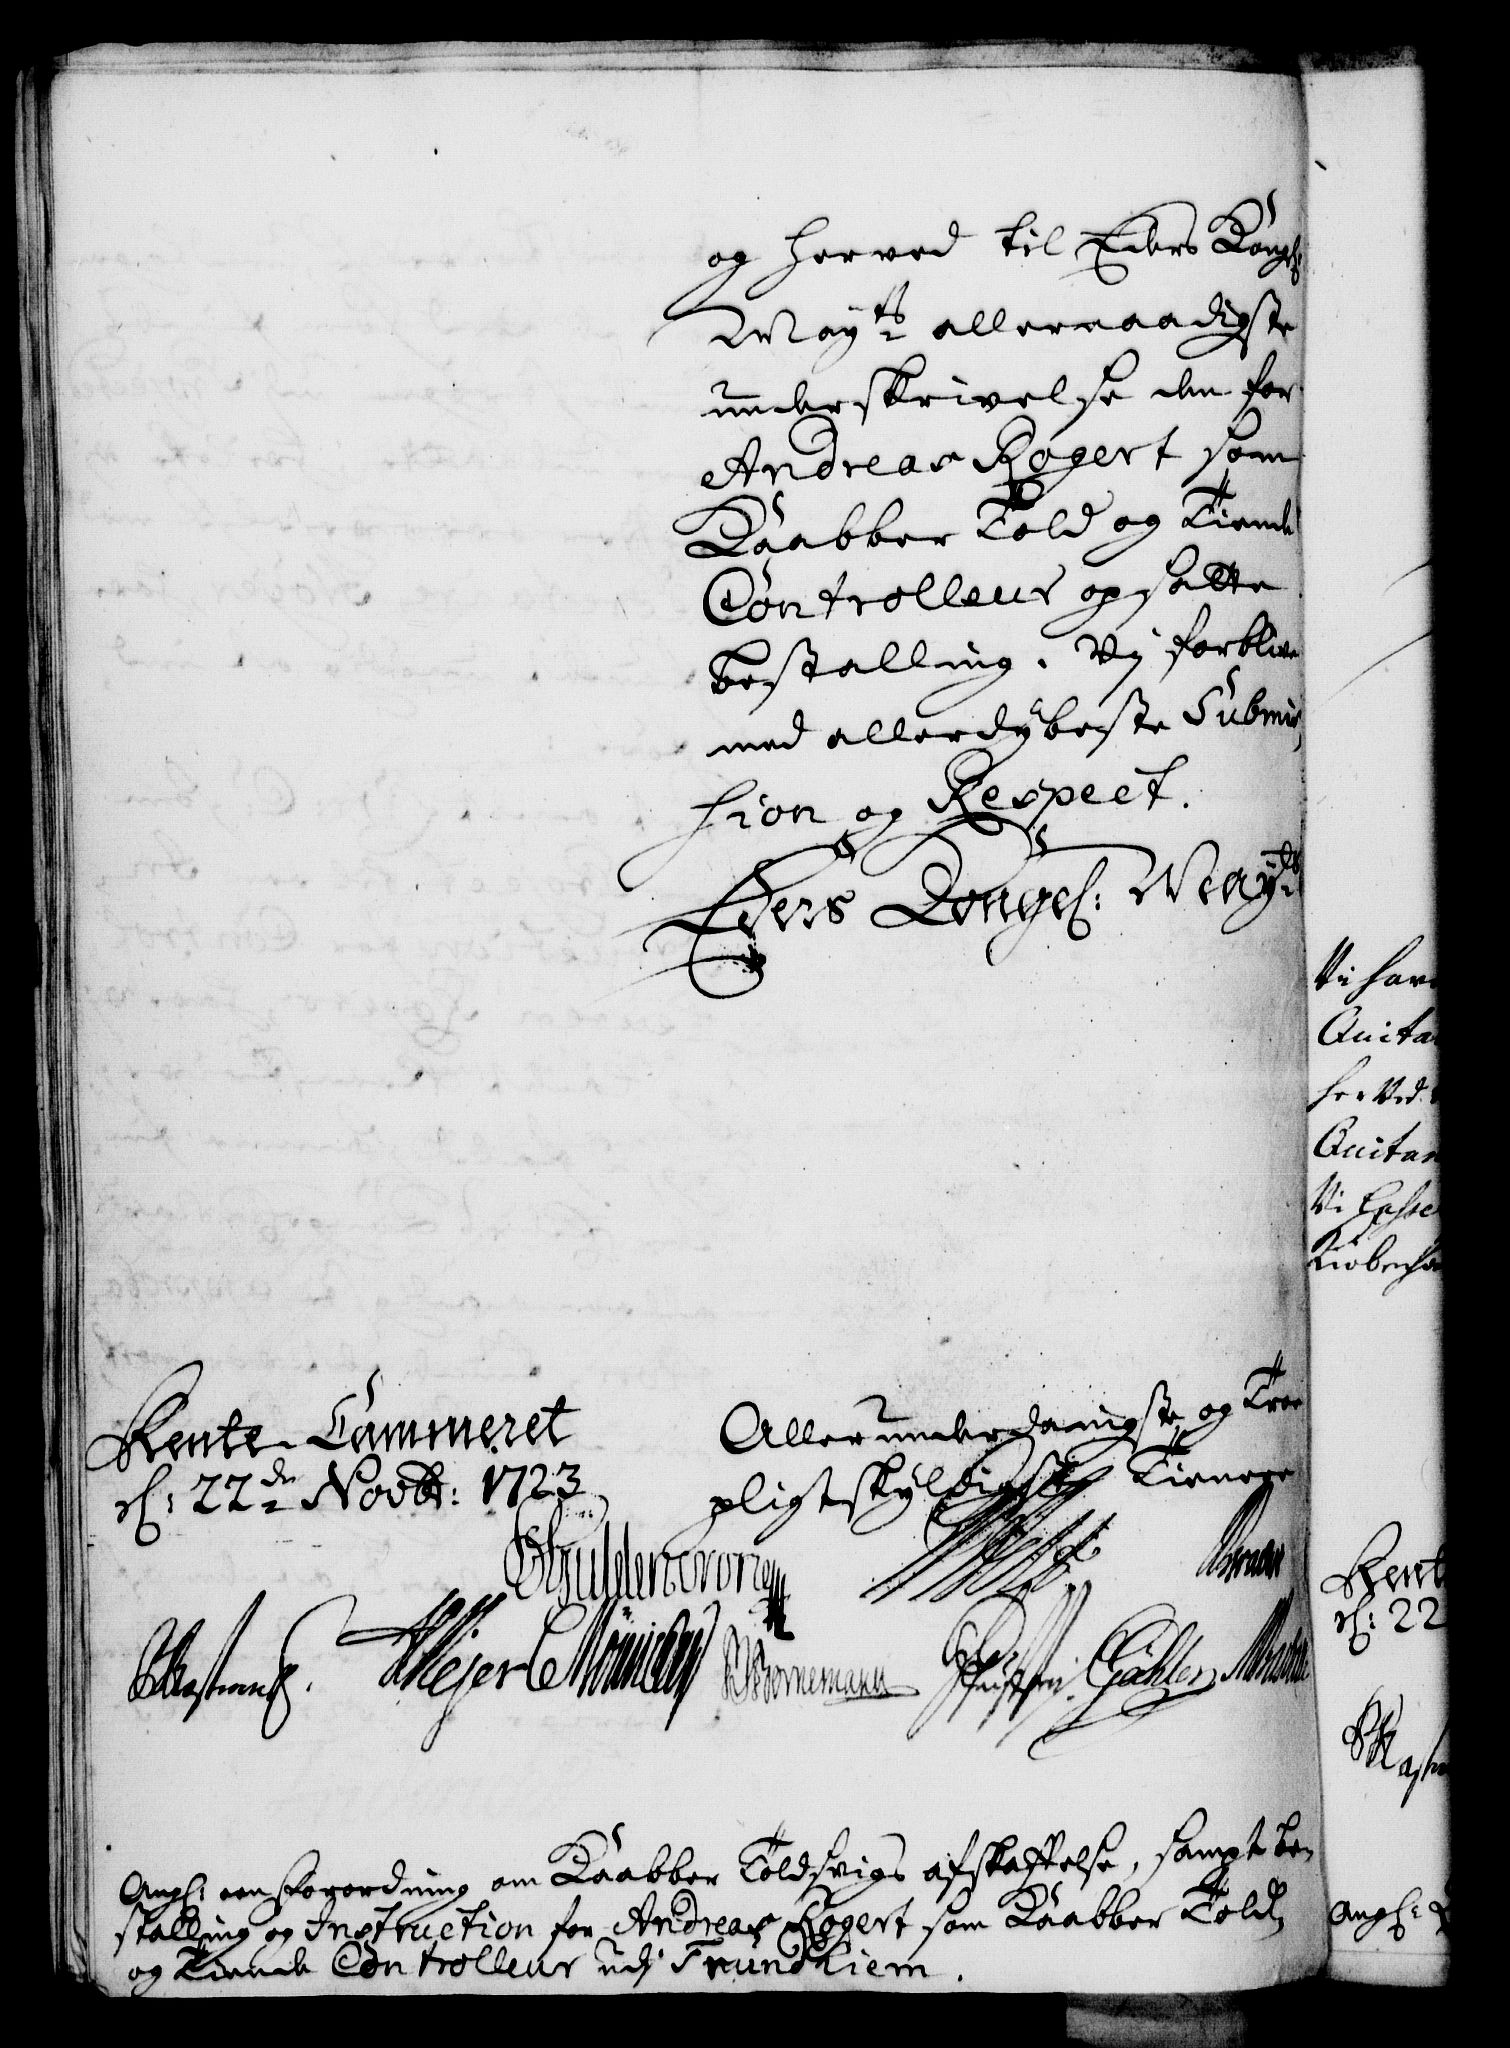 og herved til Eders Kongl:
May:ts allernaadigste
underskrivelse den for
Andreas Rogert som
Kaabber Told og Tiende
Controlleur opsatte
bestalling. Vij forblive
med allerdybeste Submis,
sion og Respect.
Eders Kongel: May:ts
Allerunderdanigste og Troe
pligtskyldigste Tienere
Rente Cammeret
d: 22de Novbr: 1723
Gyldencrone
Meyer
Bornemann
Angl: een forordning om Kaabber Toldsvigs afskaffelse, sampt be,
stalling og Instruction for Andreas Rogert som Kaabber Told,
og Tiende Controlleur udj Trundhiem.
Vi have
Quitan
her Ved
Quitan
Vi
Kiøbenha
Rent
d: 22
Angl: